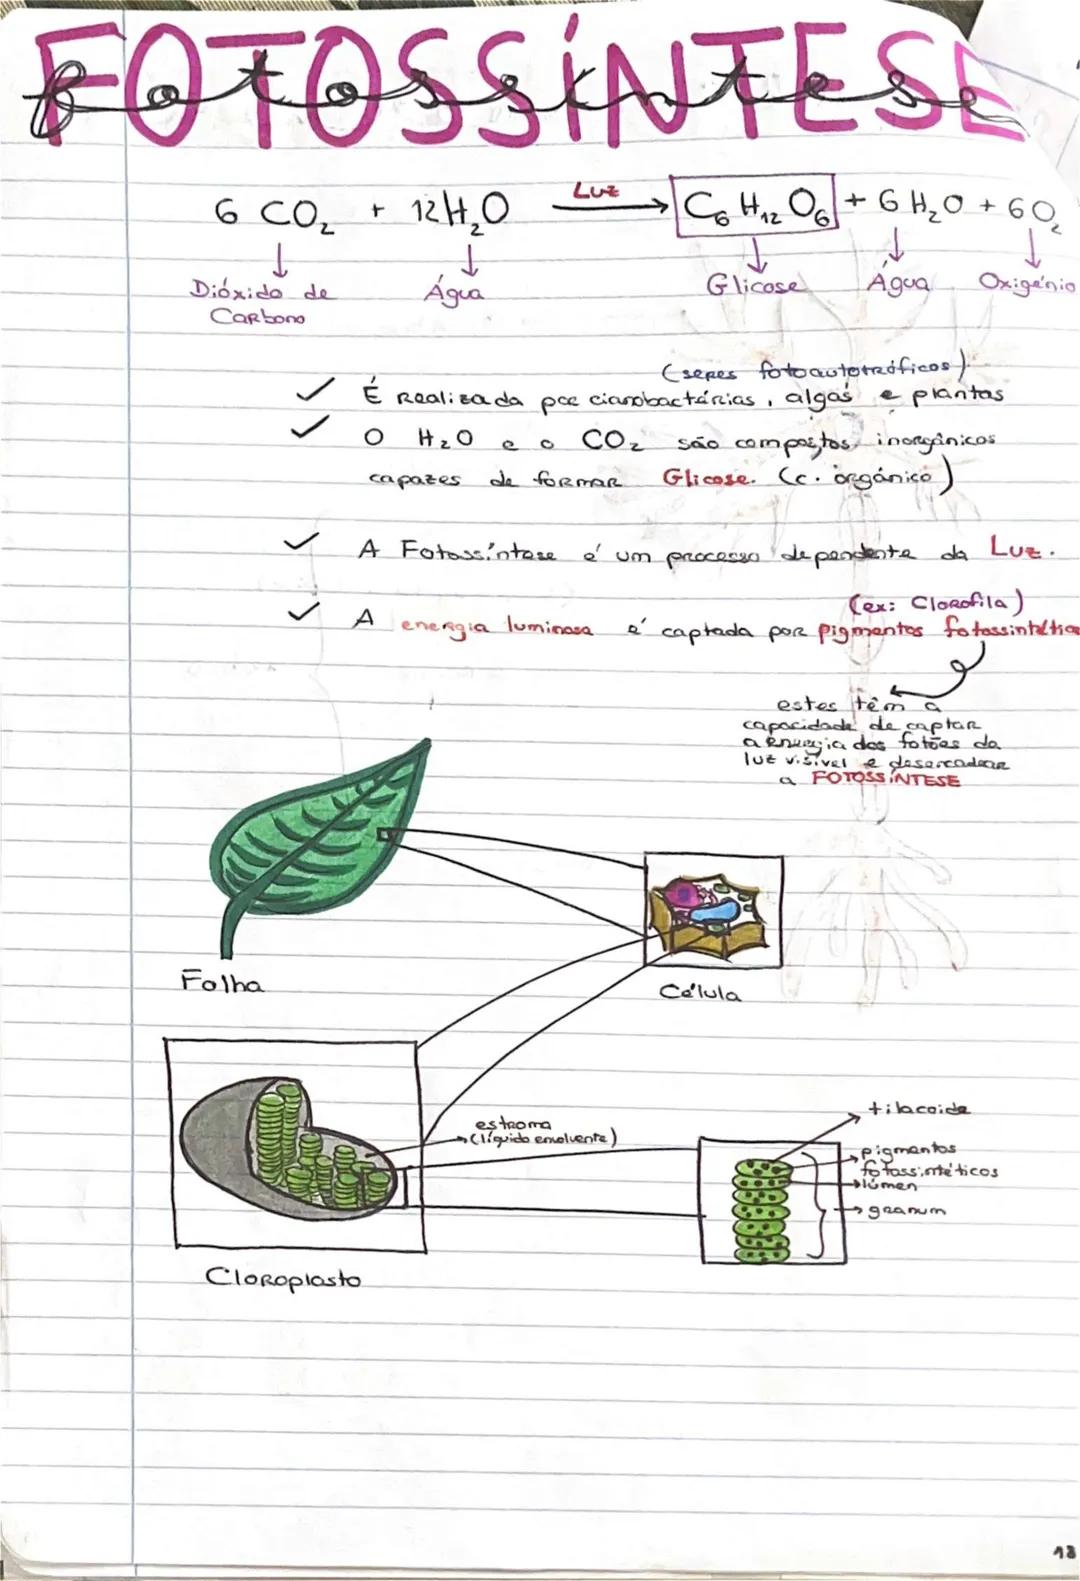 FOTOSSÍNTESE
fotossíntese
6 CO₂ + 12 H₂O Luz → C₆H₁₂O₆ + 6 H₂O + 6O₂
Dióxido de Carbono
Água
Glicose
Água
Oxigénio
(seres fotoautotróficos)
✓ É Realizada por cianobactérias, algas e plantas
✓ O H₂O e o CO₂ são compostos inorgânicos
capazes de formar Glicose. (c. orgánico)
✓ A Fotossíntese é um processo dependente da Luz.
(ex: Clorofila)
✓ A energia luminosa é captada por pigmentos fotossintétic
estes têm a
capacidade de captar
a energia dos fotões da
luz visível e desencadear
a FOTOSSÍNTESE
Folha
Célula
estroma
(líquido envolvente)
tilacoide
pigmentos
fotossintéticos
lúmen
granum
Cloroplasto
18